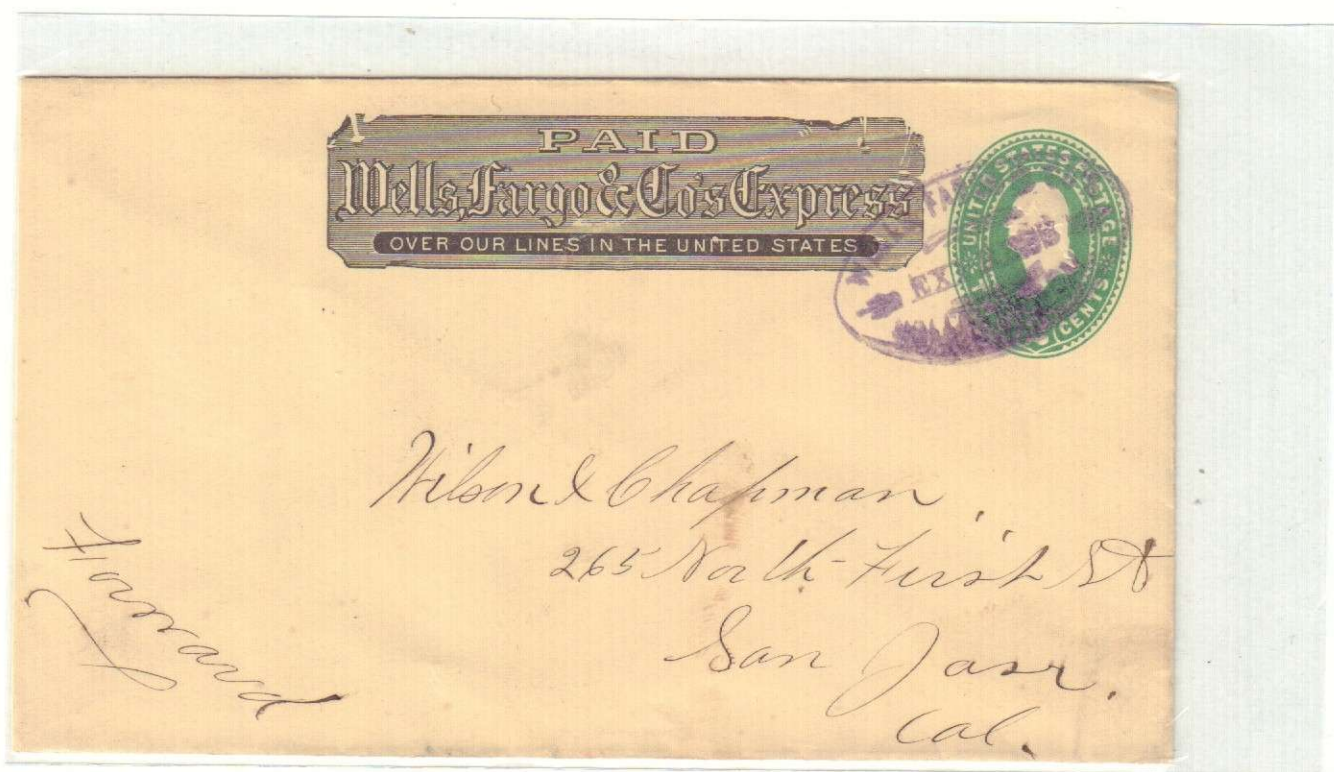 PAID
Wells, Fargo & Co's Express
OVER OUR LINES IN THE UNITED STATES
UNITED STATES POSTAGE
CENTS
WELLS FARGO
EX
Wilson & Chapman,
265 North First St
San Jose,
Cal.
Forward